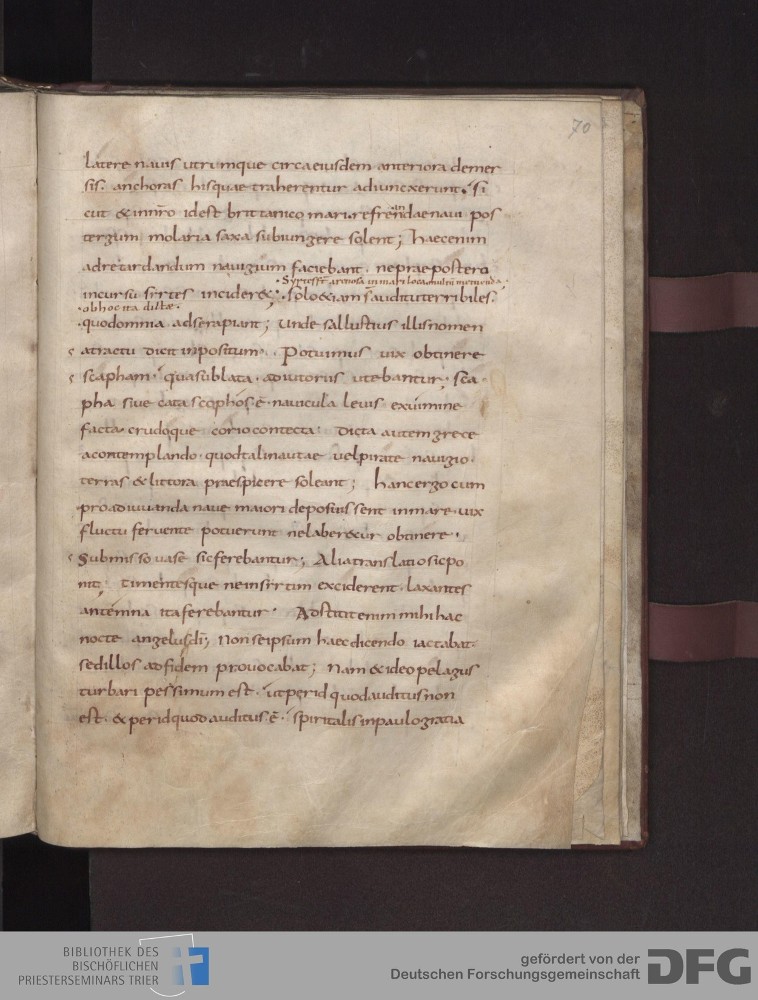 70
latere nauis utrumque circa eiusdem anteriora demer
sis. anchoras hisquae traherentur adiuncxerunt. Si
cut & in nr̄o id est brittanico mari refrendae naui pos
tergum molaria saxa subiungere solent; haec enim
ad retardandum nauigium faciebant. ne praepostero
Syrtes st̄ arenosa in mari loca multū metuenda;
incursu sirtes incider&; solo &iam auditu terribiles.
ob hoc ita dictae.
quod omnia ad se rapiant; Unde sallustius illis nomen
atractu dicit inpositum. Potuimus uix obtinere
scapham. qua sublata. adiutoriis utebantur; sca
pha siue catascophos. ē. nauicula leuis ex uimine
facta. crudoque corio contecta. dicta autem grece
a contemplando. quod tali nautae uel pirate nauigio.
terras & littora praespicere soleant; hanc ergo cum
pro adiuuanda naue maiori deposuissent in mare. uix
fluctu feruente potuerunt ne laber&ur obtinere.
Submisso uase sic ferebantur; Alia translatio sic po
nit; timentesque ne in sirtim exciderent. laxantes
antemna ita ferebantur. Adstitit enim mihi hac
nocte angelus dī; Non se ipsum haec dicendo iactabat.
sed illos ad fidem prouocabat; Nam & ideo pelagus
turbari pessimum est. ut per id quod auditus non
est. & per id quod auditus. ē. spiritalis in paulo gratia
BIBLIOTHEK DES
BISCHÖFLICHEN
PRIESTERSEMINARS TRIER
gefördert von der
Deutschen Forschungsgemeinschaft
DFG